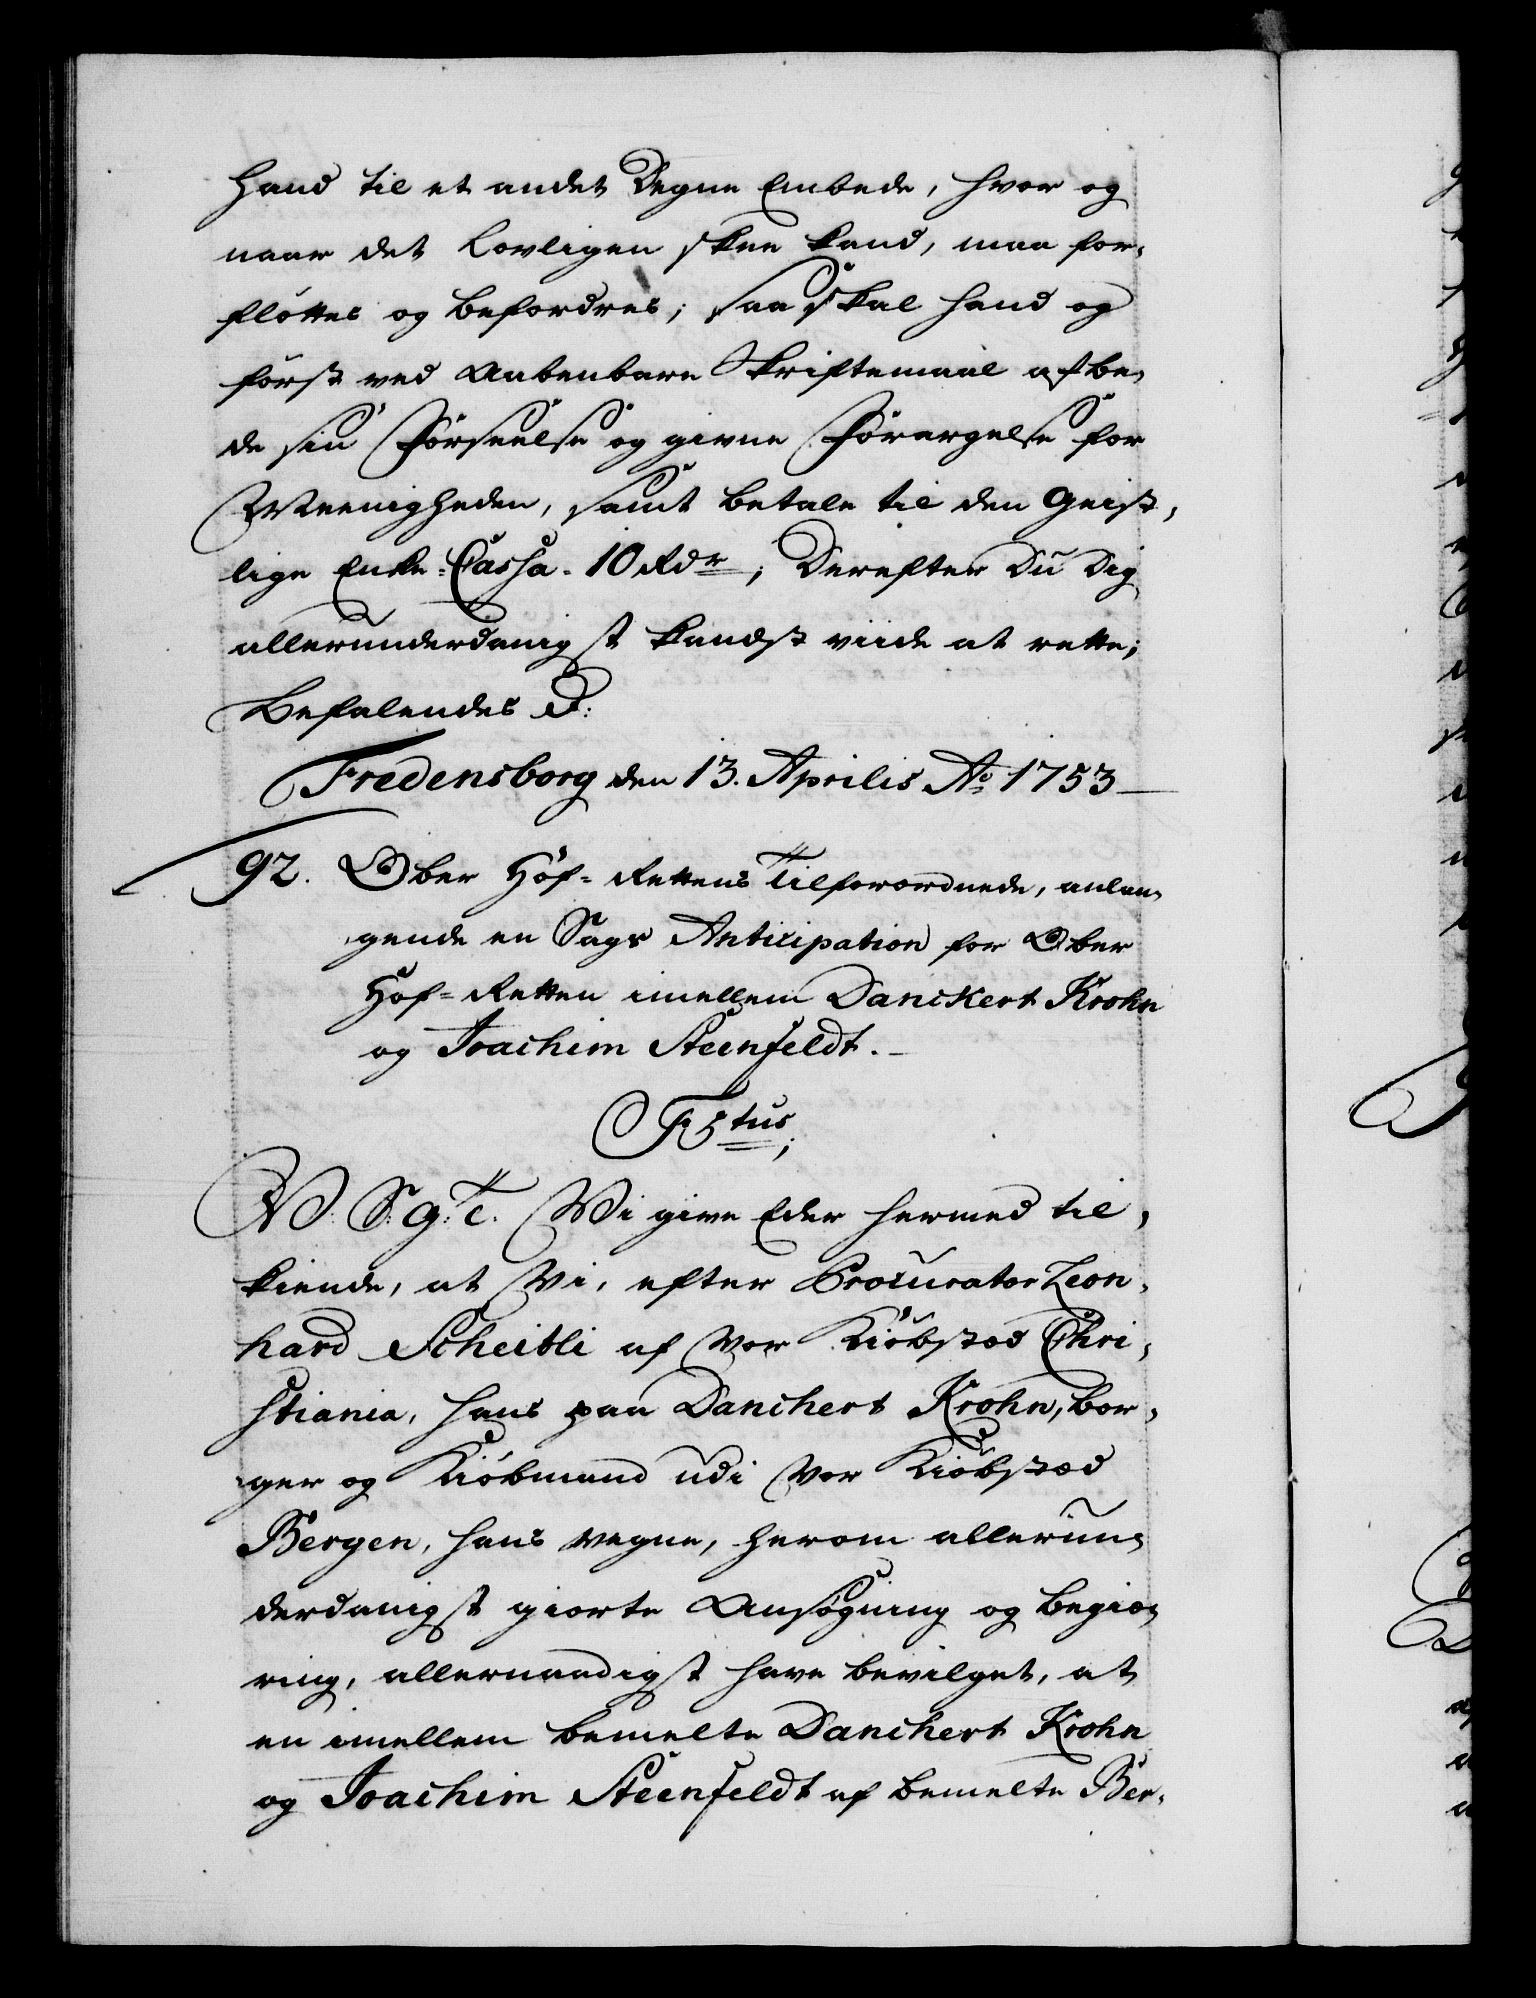 hand til et andet Degne Embede, hvor og
naar det lovligen skee kand, maa for-
fløttes og befordres; saa skal hand og
først ved Aabenbare Skriftemaal afbe-
de sin Forseelse og givne Forargelse for
Meenigheden, samt betale til den Geist-
lige Enke-Cassa. 10 Rdr; Derefter Du Dig
allerunderdanigst kandst viide at rette;
Befalendes D:
Fredensborg den 13. Aprilis Ao 1753
92. Ober Hof-Rettens Tilforordnede, anlan-
gende en Sags Anticipation for Ober
Hof-Retten imellem Danckert Krohn
og Joachim Steenfeldt.
F 5tus;
V: S: G: T. Wi give Eder hermed til-
kiende, at Wi, efter Procurator Leon-
hard Scheitli af Vor Kiøbstæd Chri-
stiania, hans paa Danchert Krohn, bor-
ger og Kiøbmand udi Vor Kiøbstæd
Bergen, hans vegne, herom allerun-
derdanigst giorte Ansøgning og begiæ-
ring, allernaadigst have bevilget, at
en imellem bemelte Danchert Krohn
og Joachim Steenfeldt af bemelte Ber-